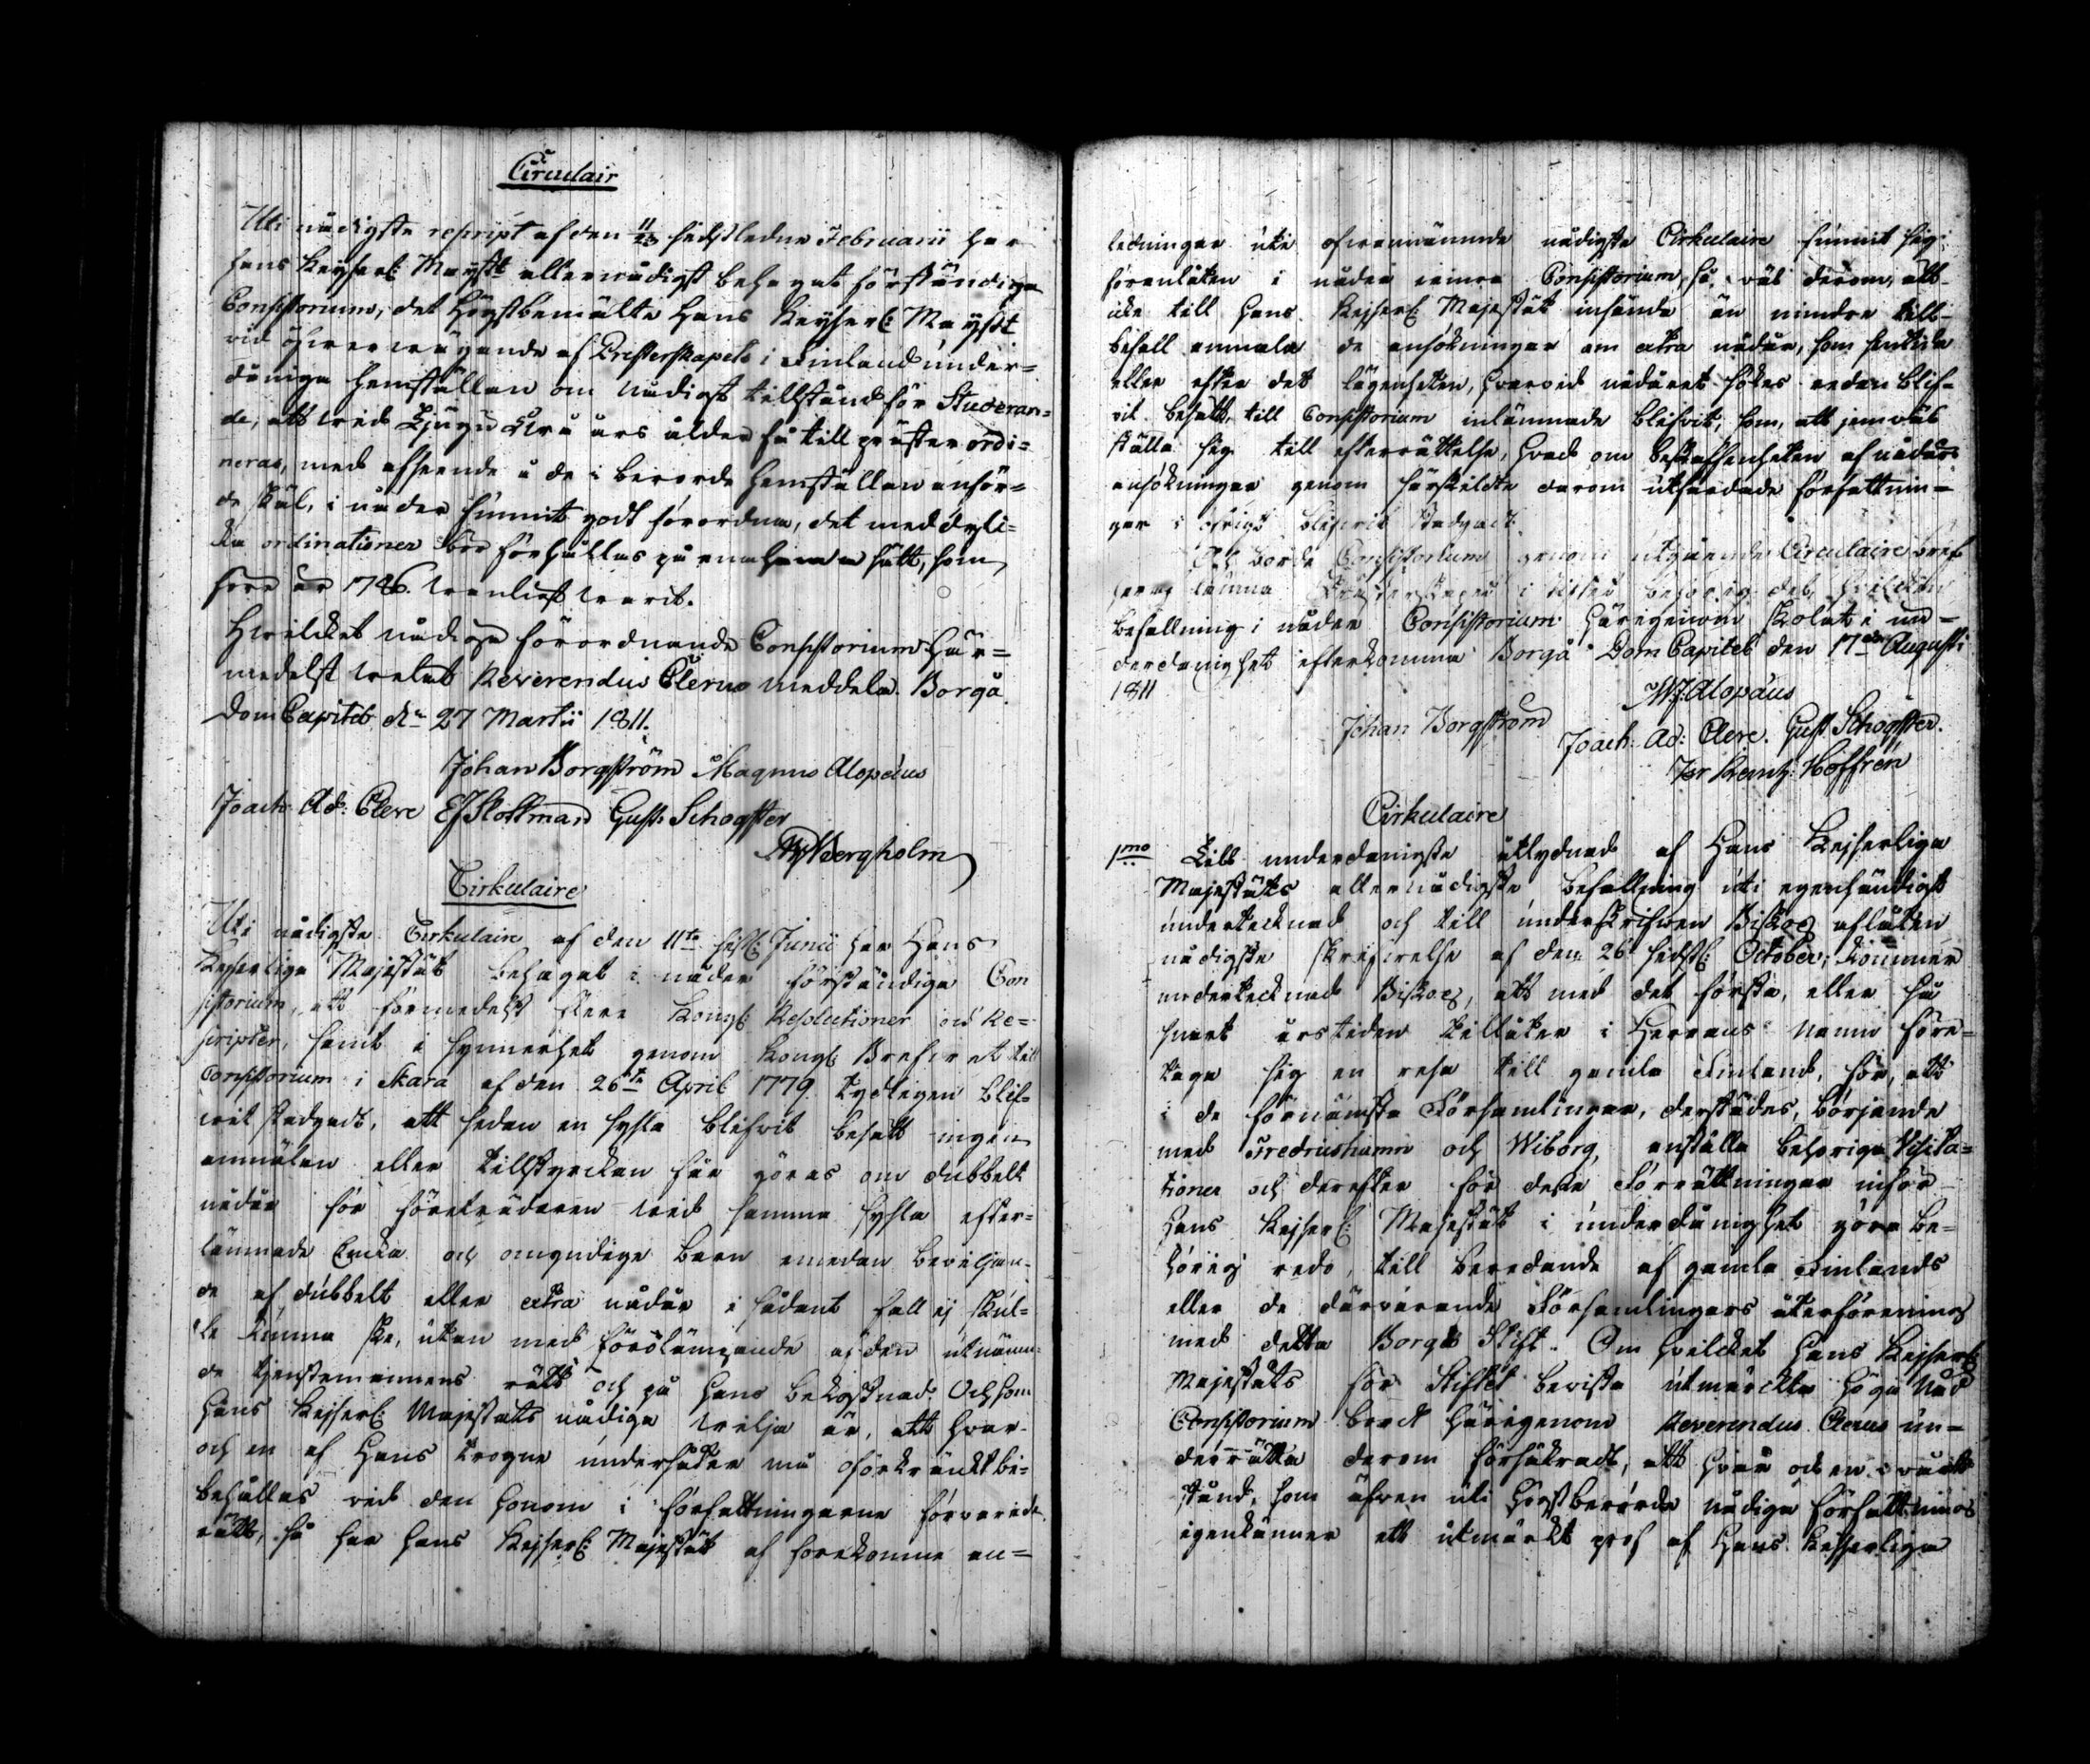 Circulair
Uti nådigste rescript af den 11/23 sidstledne Februarii har
Hans Keyserl: Mayst:t allernådigst behagat förständiga
Consistorium, det Högstbemälte Hans Keyserl: Mayst:t
vid öfvervägande af Presterskapets i Finland under=
dåniga hemställan om Nådigst tillstånd för Studeran=
de, att wid Tjugu Två års ålder få till prester ordi=
neras, med afseende å de i berörde hemställan anför=
de skäl, i nåder funnit godt förordna, det med dyli=
ka ordinationer bör förhållas på enahanda sätt, som
före år 1786 wanligt warit.
Hwilcket nådiga förordnande Consistorium här=
medelst welat Reverendus Clerus meddela. Borgå
DomCapitel d:n 27 Martii 1811.
Johan Borgström Magnus Alopæus
Joach: Ad: Cleve EJ Slottman Gust: Schogster
Bergholm
Cirkulaire
Uti nådigste Cirkulaire af den 11:te sistl: Junii har Hans
Kejserliga Majestät behagat i nåder förständiga Con
sistorium, att förmedelst flere Kongl: Resolutioner och Re=
scripter, samt i synnerhet genom Kongl: Brefvet till
Consistorium i Skara af den 26:te April 1779 tydligen blif=
wit stadgadt, att sedan en sysla blifvit besatt ingen
anmälan eller tillstyrckan får göras om dubbelt
nådår för företrädaren wid samma sysla efter=
lämnade Encka och omyndige barn emedan beviljan=
de af dubbelt eller extra nådår i sådant fall ej skul=
le kunna ske, utan med förolämpande af den utnämn=
de tjenstemannens rätt och på hans bekostnad. Och som
Hans Kejserl: Majestäts nådiga wilja är, att hvar
och en af Hans trogne undersåter må oförkränckt bi=
behållas vid den honom i författningarne förvarade
rätt, så har Hans Kejserl: Majestät af förekomne an=
ledningar uti ofwannämnde nådigste Cirkulaire funnit sig
föranlåten i nåder Consistorium, så väl derom, att
icke till Hans Kejserl: Majestät insända än mindre till
bifall anmäla de ansökningar om extra nådår, som
eller efter det lägenheten, hvarvid nådåret sökes redan blif=
vit besatt, till Consistorium inlämnade blifvit, som, att jemväl
ställa sig till efterrättelse, hvad om beskaffenheten af nådårs
ansökningar genom särskildte derom utfärdade författnin=
gar i öfrigt blifvit stadgadt.
Och borde Consistorium genom utgående Circulaire bref
lämna Presterskapet i Stiftet
befallning i nåder Consistorium härigenom skolat i un=
derdånighet efterkomma Borgå DomCapitel den 17:de Augusti
1811
M Alopæus
Johan Borgström Joach: Ad: Cleve. Gust Schogster.
Hoffrén
Cirkulaire
1:mo Till underdånigste åtlydnad af Hans Kejserliga
Majestäts allernådigste befallning uti egenhändigt
undertecknad och till underskrifven Biskop aflåten
nådigste skrifvelse af den 26 sidstl: October, kommer
undertecknad Biskop, att med det första, eller så
snart årstiden tillåter i Herrans namn före=
taga sig en resa till gamla Finland, för, att
i de förnämsta Församlingar, derstädes, börjande
med Fredrichshamn och Wiborg, anställa behöriga Visita=
tioner och derefter för desse Förrättningar inför
Hans Kejserl: Majestät i underdånighet göra be=
hörig redo, till beredande af gamla Finlands
eller de därvarande Församlingars återförening
med detta Borgå Stift. Om hvilcket Hans Kejserl:
Majestäts för Stiftet bevista utmärckta höga Nåd
Consistorium bordt härigenom Reverendus Clerus un=
derrätta derom försäkradt, att hvar och en i vårt
stånd, som äfven uti högstberörde nådiga författning
igenkänner ett utmärkt prof af Hans Kejserliga